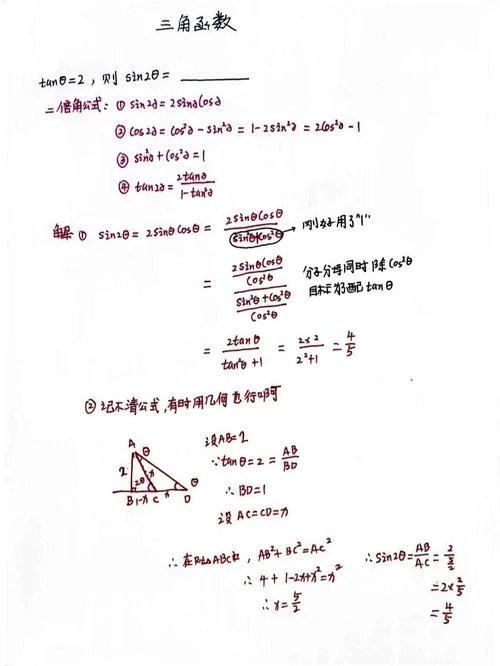 三角函数
tanθ=2，则 sin2θ= ________
二倍角公式：① sin2α=2sinαcosα
② cos2α=cos²α-sin²α=1-2sin²α=2cos²α-1
③ sin²α+cos²α=1
④ tan2α=2tanα/1-tan²α
解 ① sin2θ=2sinθcosθ=2sinθcosθ/sin²θ+cos²θ → 刚好用了"1"
=(2sinθcosθ/cos²θ)/(sin²θ+cos²θ/cos²θ) 分子分母同时除cos²θ
目标为配tanθ
=2tanθ/tan²θ+1=2×2/2²+1=4/5
② 记不清公式，有时用几何也行啊
A θ
2 2θ x
θ
B 1-x C x D
设AB=2
∵tanθ=2=AB/BD
∴BD=1
设AC=CD=x
∴在Rt△ABC中，AB²+BC²=AC²
∴4+1-2x+x²=x²
∴x=5/2
∴sin2θ=AB/AC=2/(5/2)
=2×2/5
=4/5